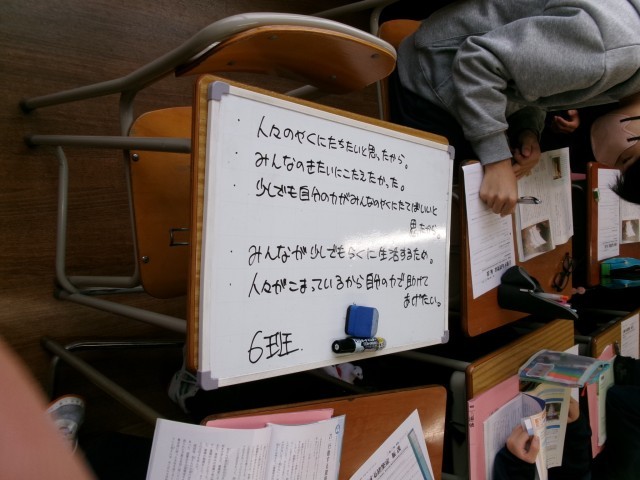 ・人々のやくにたちたいと思ったから。
・みんなのきたいにこたえたかった。
・少しでも自分の力がみんなのやくにたてばいいと
思ったから。
・みんなが少しでもらくに生活するため。
・人々がこまっているから自分の力で助けて
あげたい。
6班